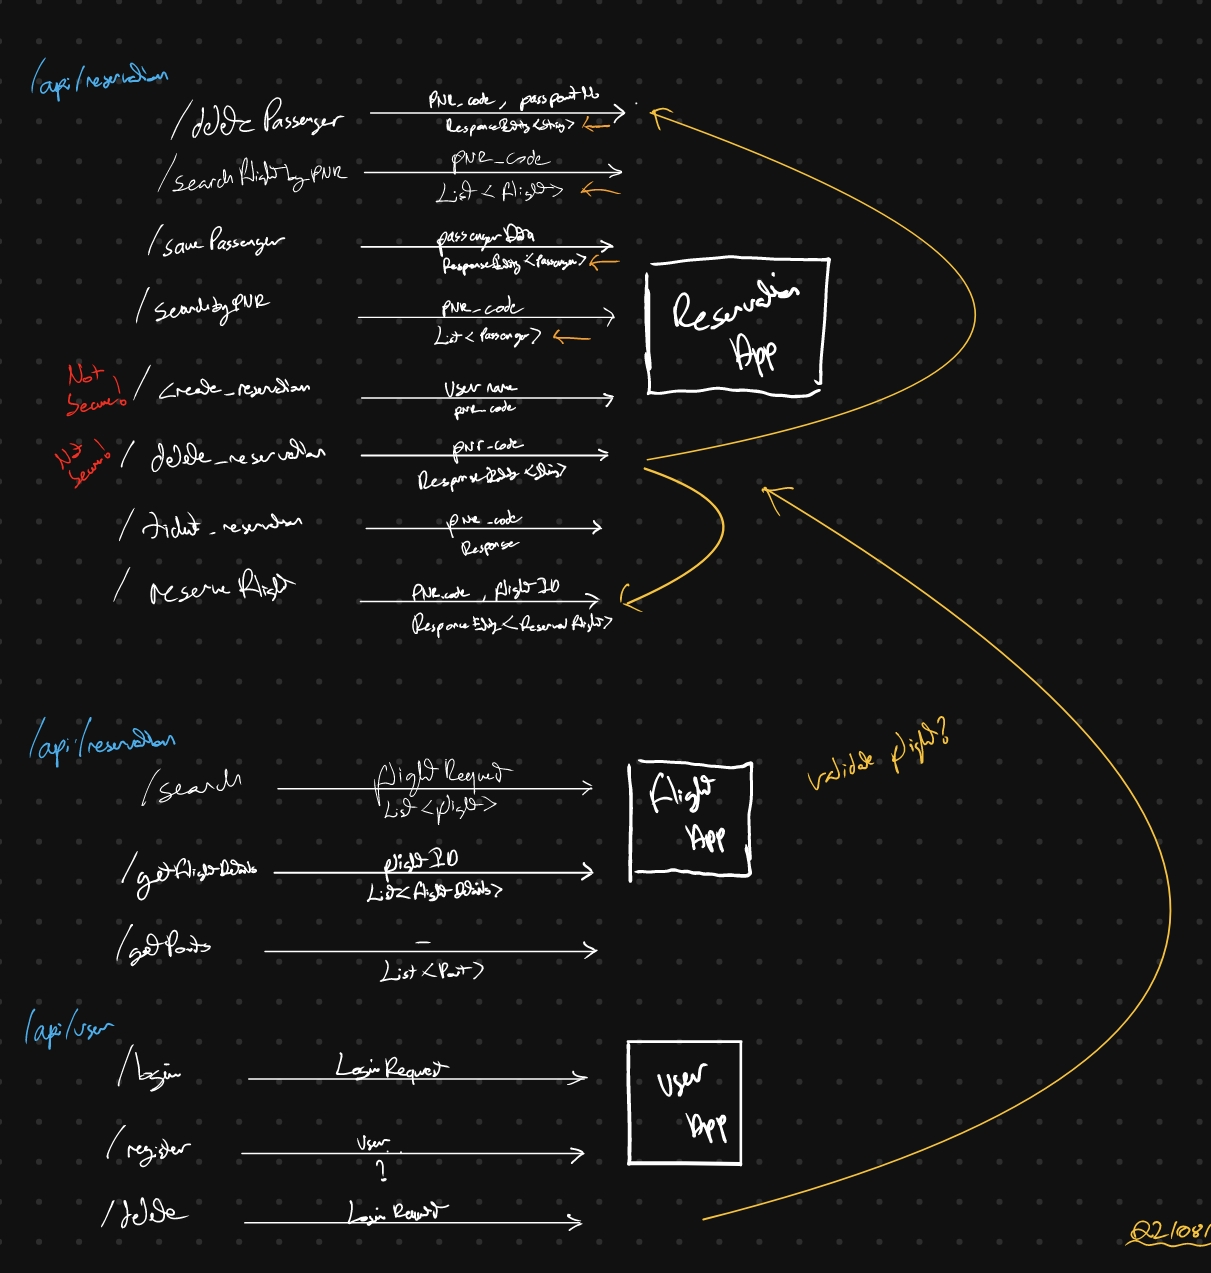 /api/reservation
/delete Passenger
PNR_code, passportNo
ResponseEntity<String>
/searchFlightbyPNR
PNR_code
List<Flight>
/savePassenger
passengerData
ResponseEntity<Passenger>
/SearchbyPNR
PNR_code
List<Passenger>
Reservation
App
Not
Secure!
/create_reservation
Username
pnr_code
Not
Secure!
/delete_reservation
pnr_code
ResponseEntity<String>
/ticket_reservation
pnr_code
Response
/reserve Flight
PNR_code, flightID
ResponseEntity<Reserved Flight>
/api/reservation
/search
flightRequest
List<flight>
Flight
App
validate flight?
/getFlightDetails
flightID
List<FlightDetails>
/getPorts
-
List<Port>
/api/user
/login
LoginRequest
User
App
/register
User
?
/delete
Login Request